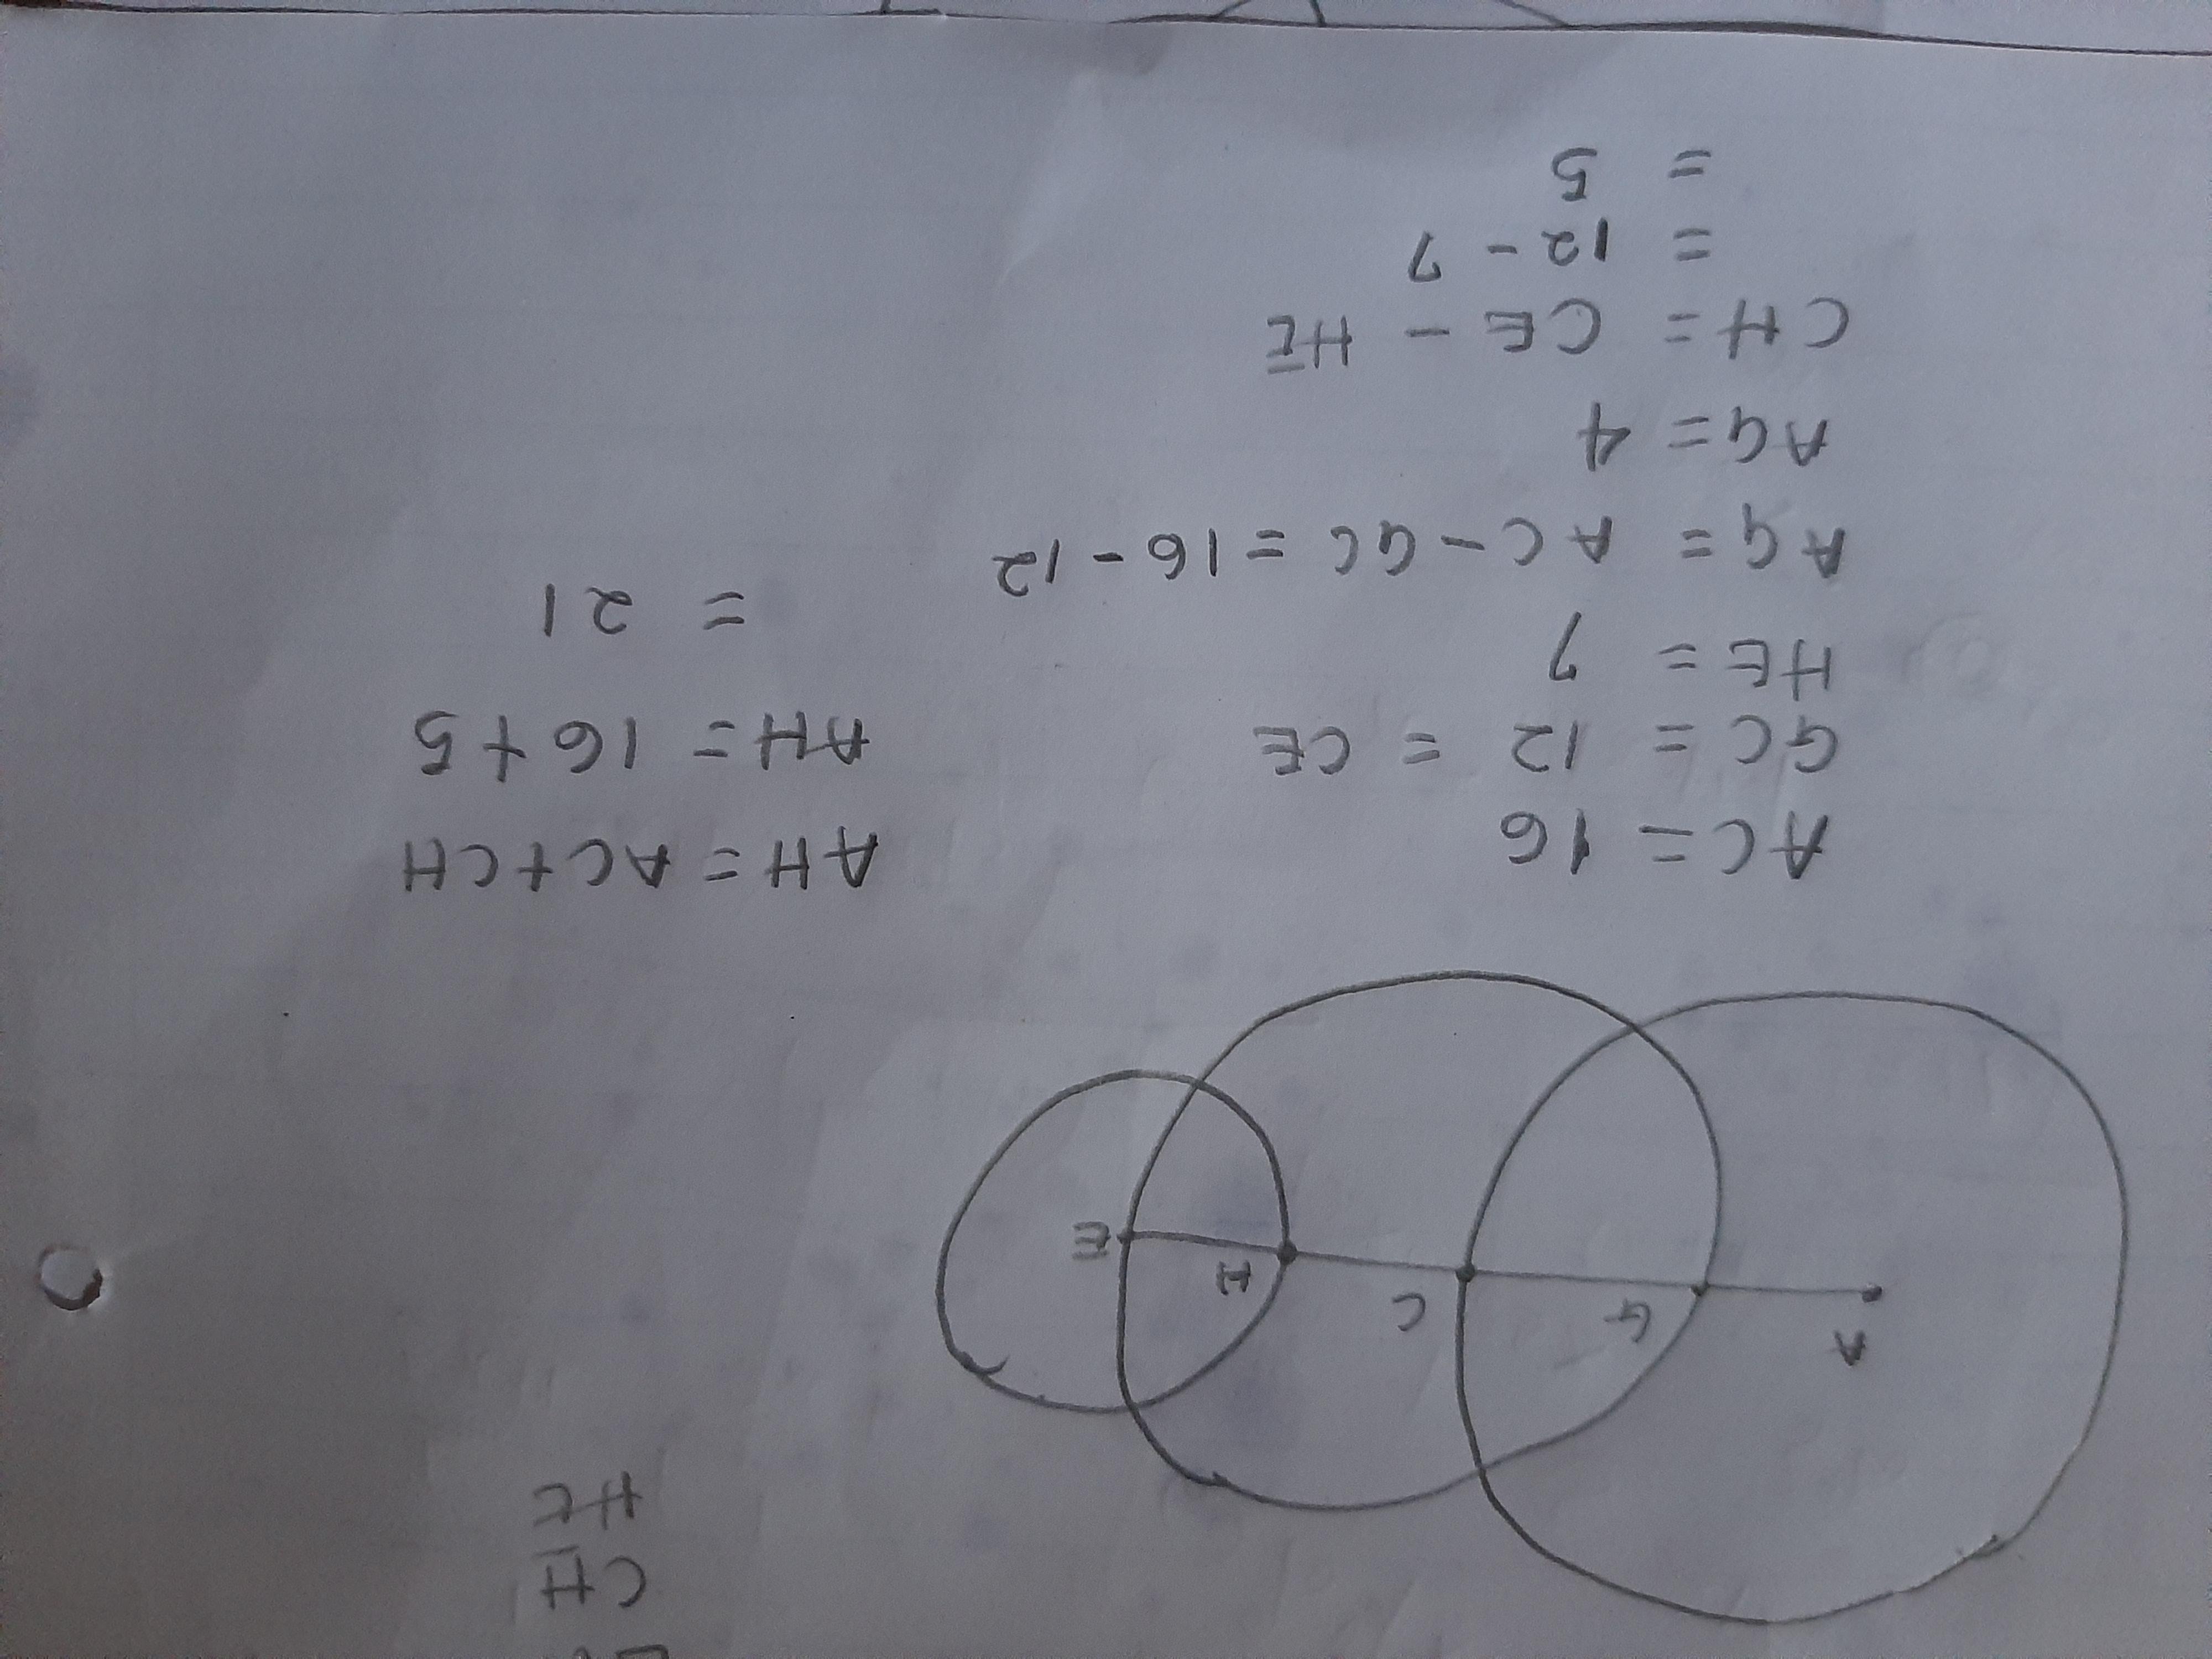 CH
HE
A G C H E
AC = 16
GC = 12 = CE
HE = 7
AG = AC - GC = 16 - 12
AG = 4
CH = CE - HE
= 12 - 7
= 5
AH = AC + CH
AH = 16 + 5
= 21